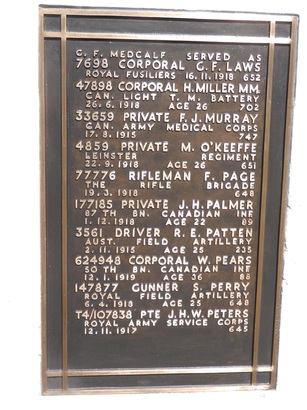 G. F. MEDCALF SERVED AS
7698 CORPORAL G. F. LAWS
ROYAL FUSILIERS 16.11.1918 652
47898 CORPORAL H. MILLER M.M.
CAN. LIGHT T. M. BATTERY
26.6.1918 AGE 26 702
33659 PRIVATE F. J. MURRAY
CAN. ARMY MEDICAL CORPS
17.8.1915 747
4859 PRIVATE M. O'KEEFFE
LEINSTER REGIMENT
22.9.1918 AGE 26 651
77776 RIFLEMAN F. PAGE
THE RIFLE BRIGADE
19.3.1918 648
177185 PRIVATE J. H. PALMER
87TH BN. CANADIAN INF
1.12.1918 AGE 22 89
3561 DRIVER R. E. PATTEN
AUST. FIELD ARTILLERY
2.11.1915 AGE 25 235
624948 CORPORAL W. PEARS
50TH BN. CANADIAN INF
12.1.1919 AGE 36 88
147877 GUNNER S. PERRY
ROYAL FIELD ARTILLERY
6.4.1918 AGE 25 648
T4/107838 PTE J. H. W. PETERS
ROYAL ARMY SERVICE CORPS
12.11.1917 645